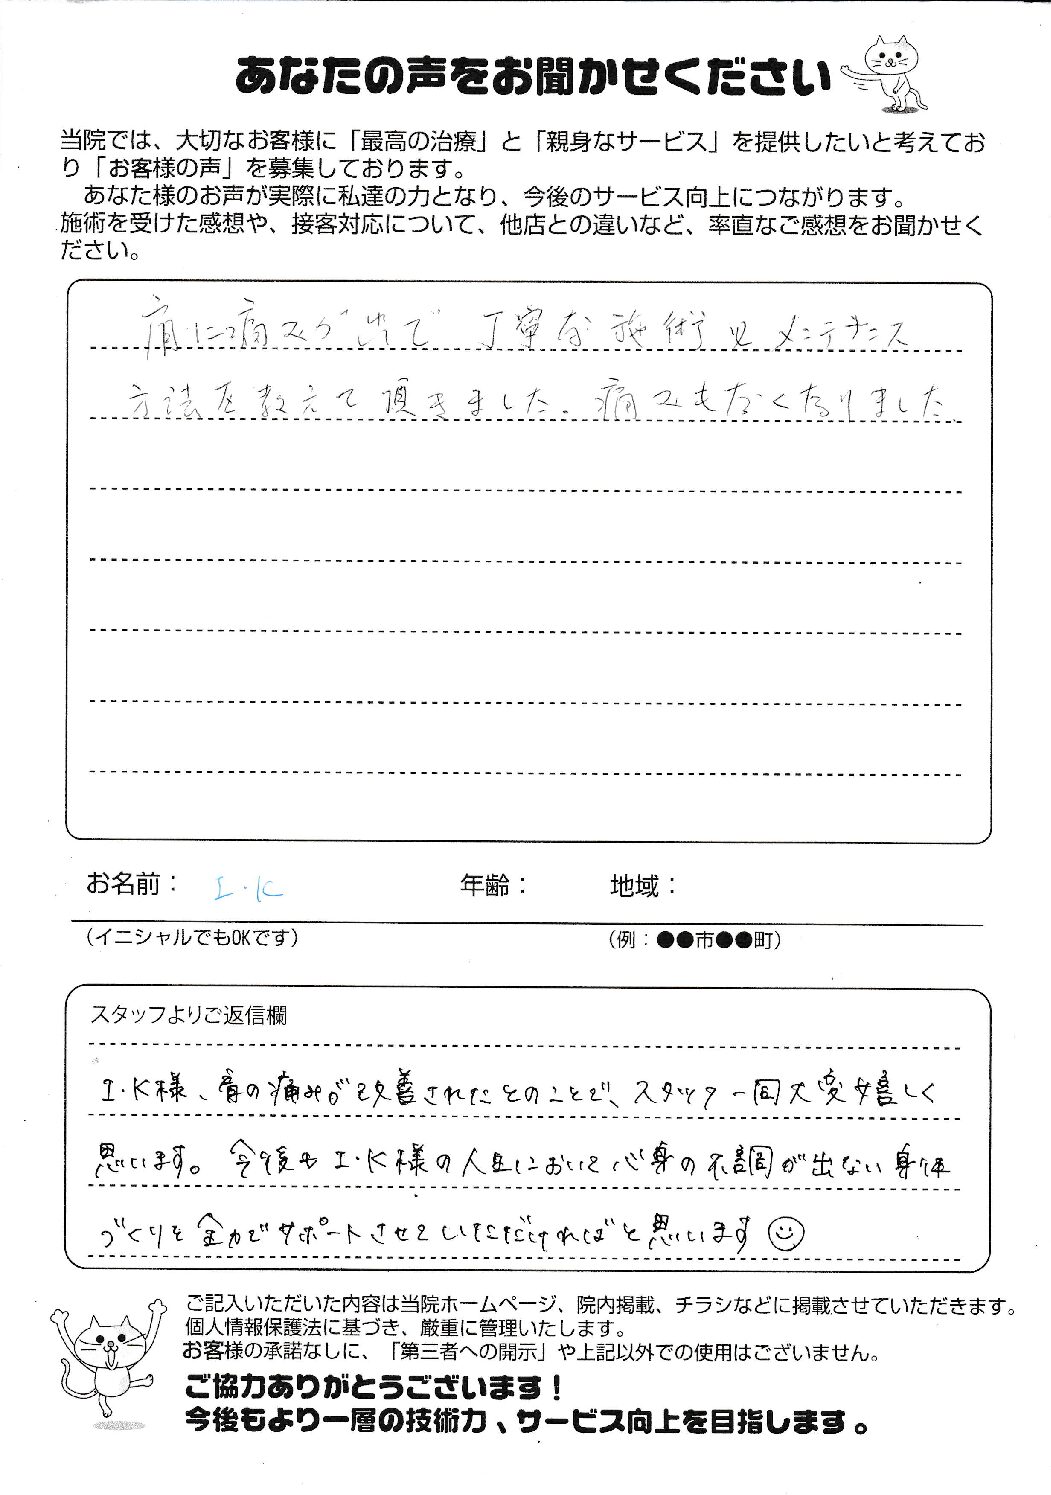 あなたの声をお聞かせください
当院では、大切なお客様に「最高の治療」と「親身なサービス」を提供したいと考えてお
り「お客様の声」を募集しております。
あなた様のお声が実際に私達の力となり、今後のサービス向上につながります。
施術を受けた感想や、接客対応について、他店との違いなど、率直なご感想をお聞かせく
ださい。
肩に痛みが出て 丁寧な施術とメンテナンス
方法を教えて頂きました。痛みもなくなりました
お名前： I・K 年齢： 地域：
（イニシャルでもOKです） （例：●●市●●町）
スタッフよりご返信欄
I・K様、肩の痛みが改善されたとのことで、スタッフ一同大変嬉しく
思います。今後もI・K様の人生において心身の不調が出ない身体
づくりを全力でサポートさせていただければと思います☺
ご記入いただいた内容は当院ホームページ、院内掲載、チラシなどに掲載させていただきます。
個人情報保護法に基づき、厳重に管理いたします。
お客様の承諾なしに、「第三者への開示」や上記以外での使用はございません。
ご協力ありがとうございます！
今後もより一層の技術力、サービス向上を目指します。